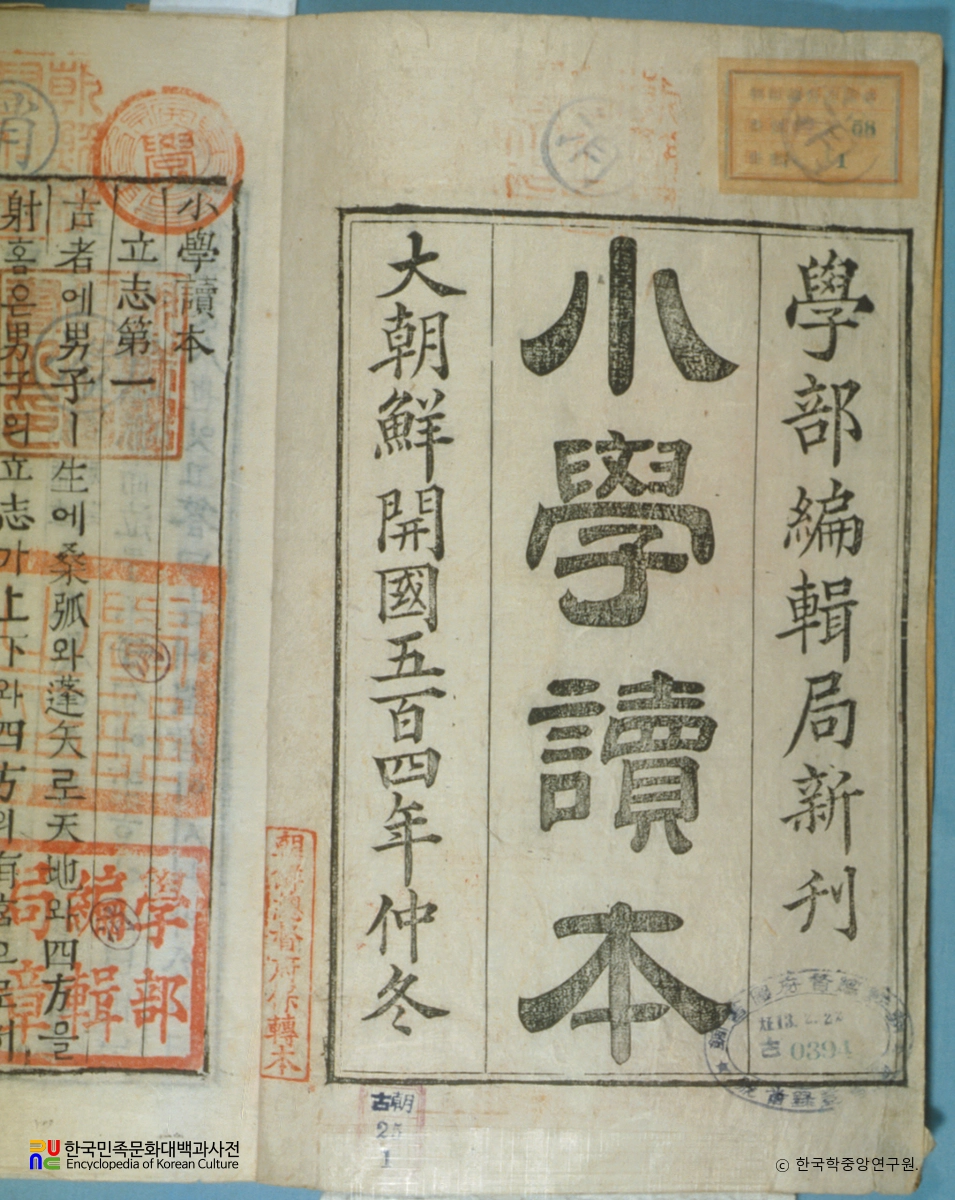 學部編輯局新刊
小學讀本
大朝鮮開國五百四年仲冬
小學讀本
立志第一
古者에男子ㅣ生에桑弧와蓬矢로天地와四方을
射홈은男子의立志가上下와四方의有
學部
編輯
局章
朝鮮總督府
轉本
68
1
大正13.
古0394
古朝
1
한국민족문화대백과사전
Encyclopedia of Korean Culture
© 한국학중앙연구원.